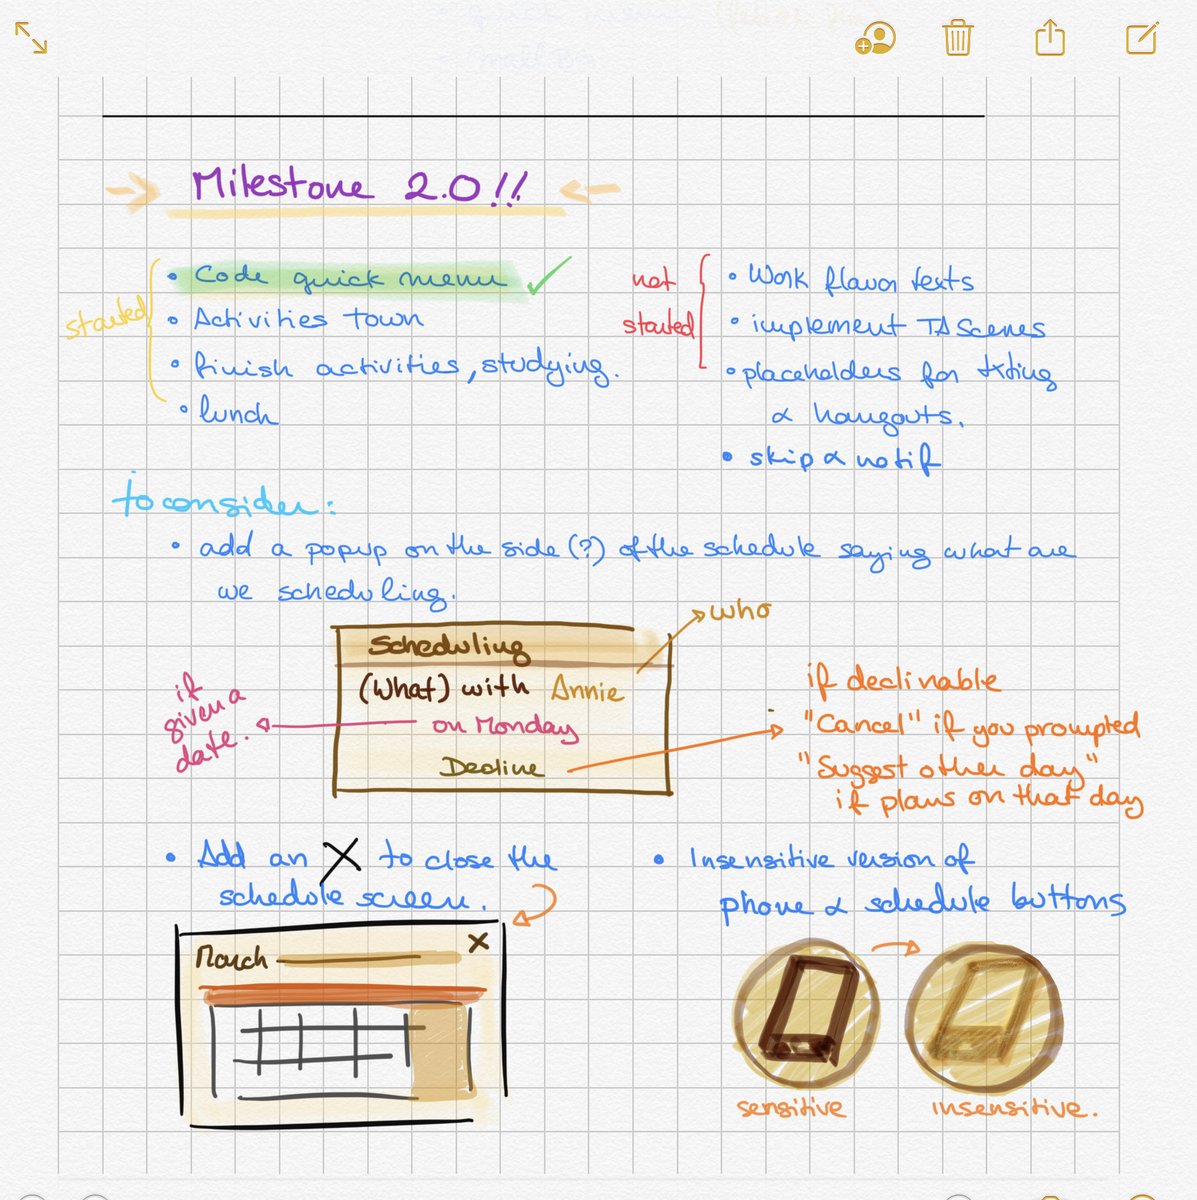 Milestone 2.0!!
started
• Code quick menu ✓
• Activities town
• finish activities, studying.
• lunch
not
started
• Work flavor texts
• implement TA Scenes
• placeholders for txting
& hangouts.
• skip & notif
to consider:
• add a popup on the side (?) of the schedule saying what are
we scheduling.
who
Scheduling
(What) with Annie
on Monday
Decline
if
given a
date.
if declinable
"Cancel" if you prompted
"Suggest other day"
if plans on that day
• Add an X to close the
schedule screen.
March
X
• Insensitive version of
phone & schedule buttons
sensitive
insensitive.